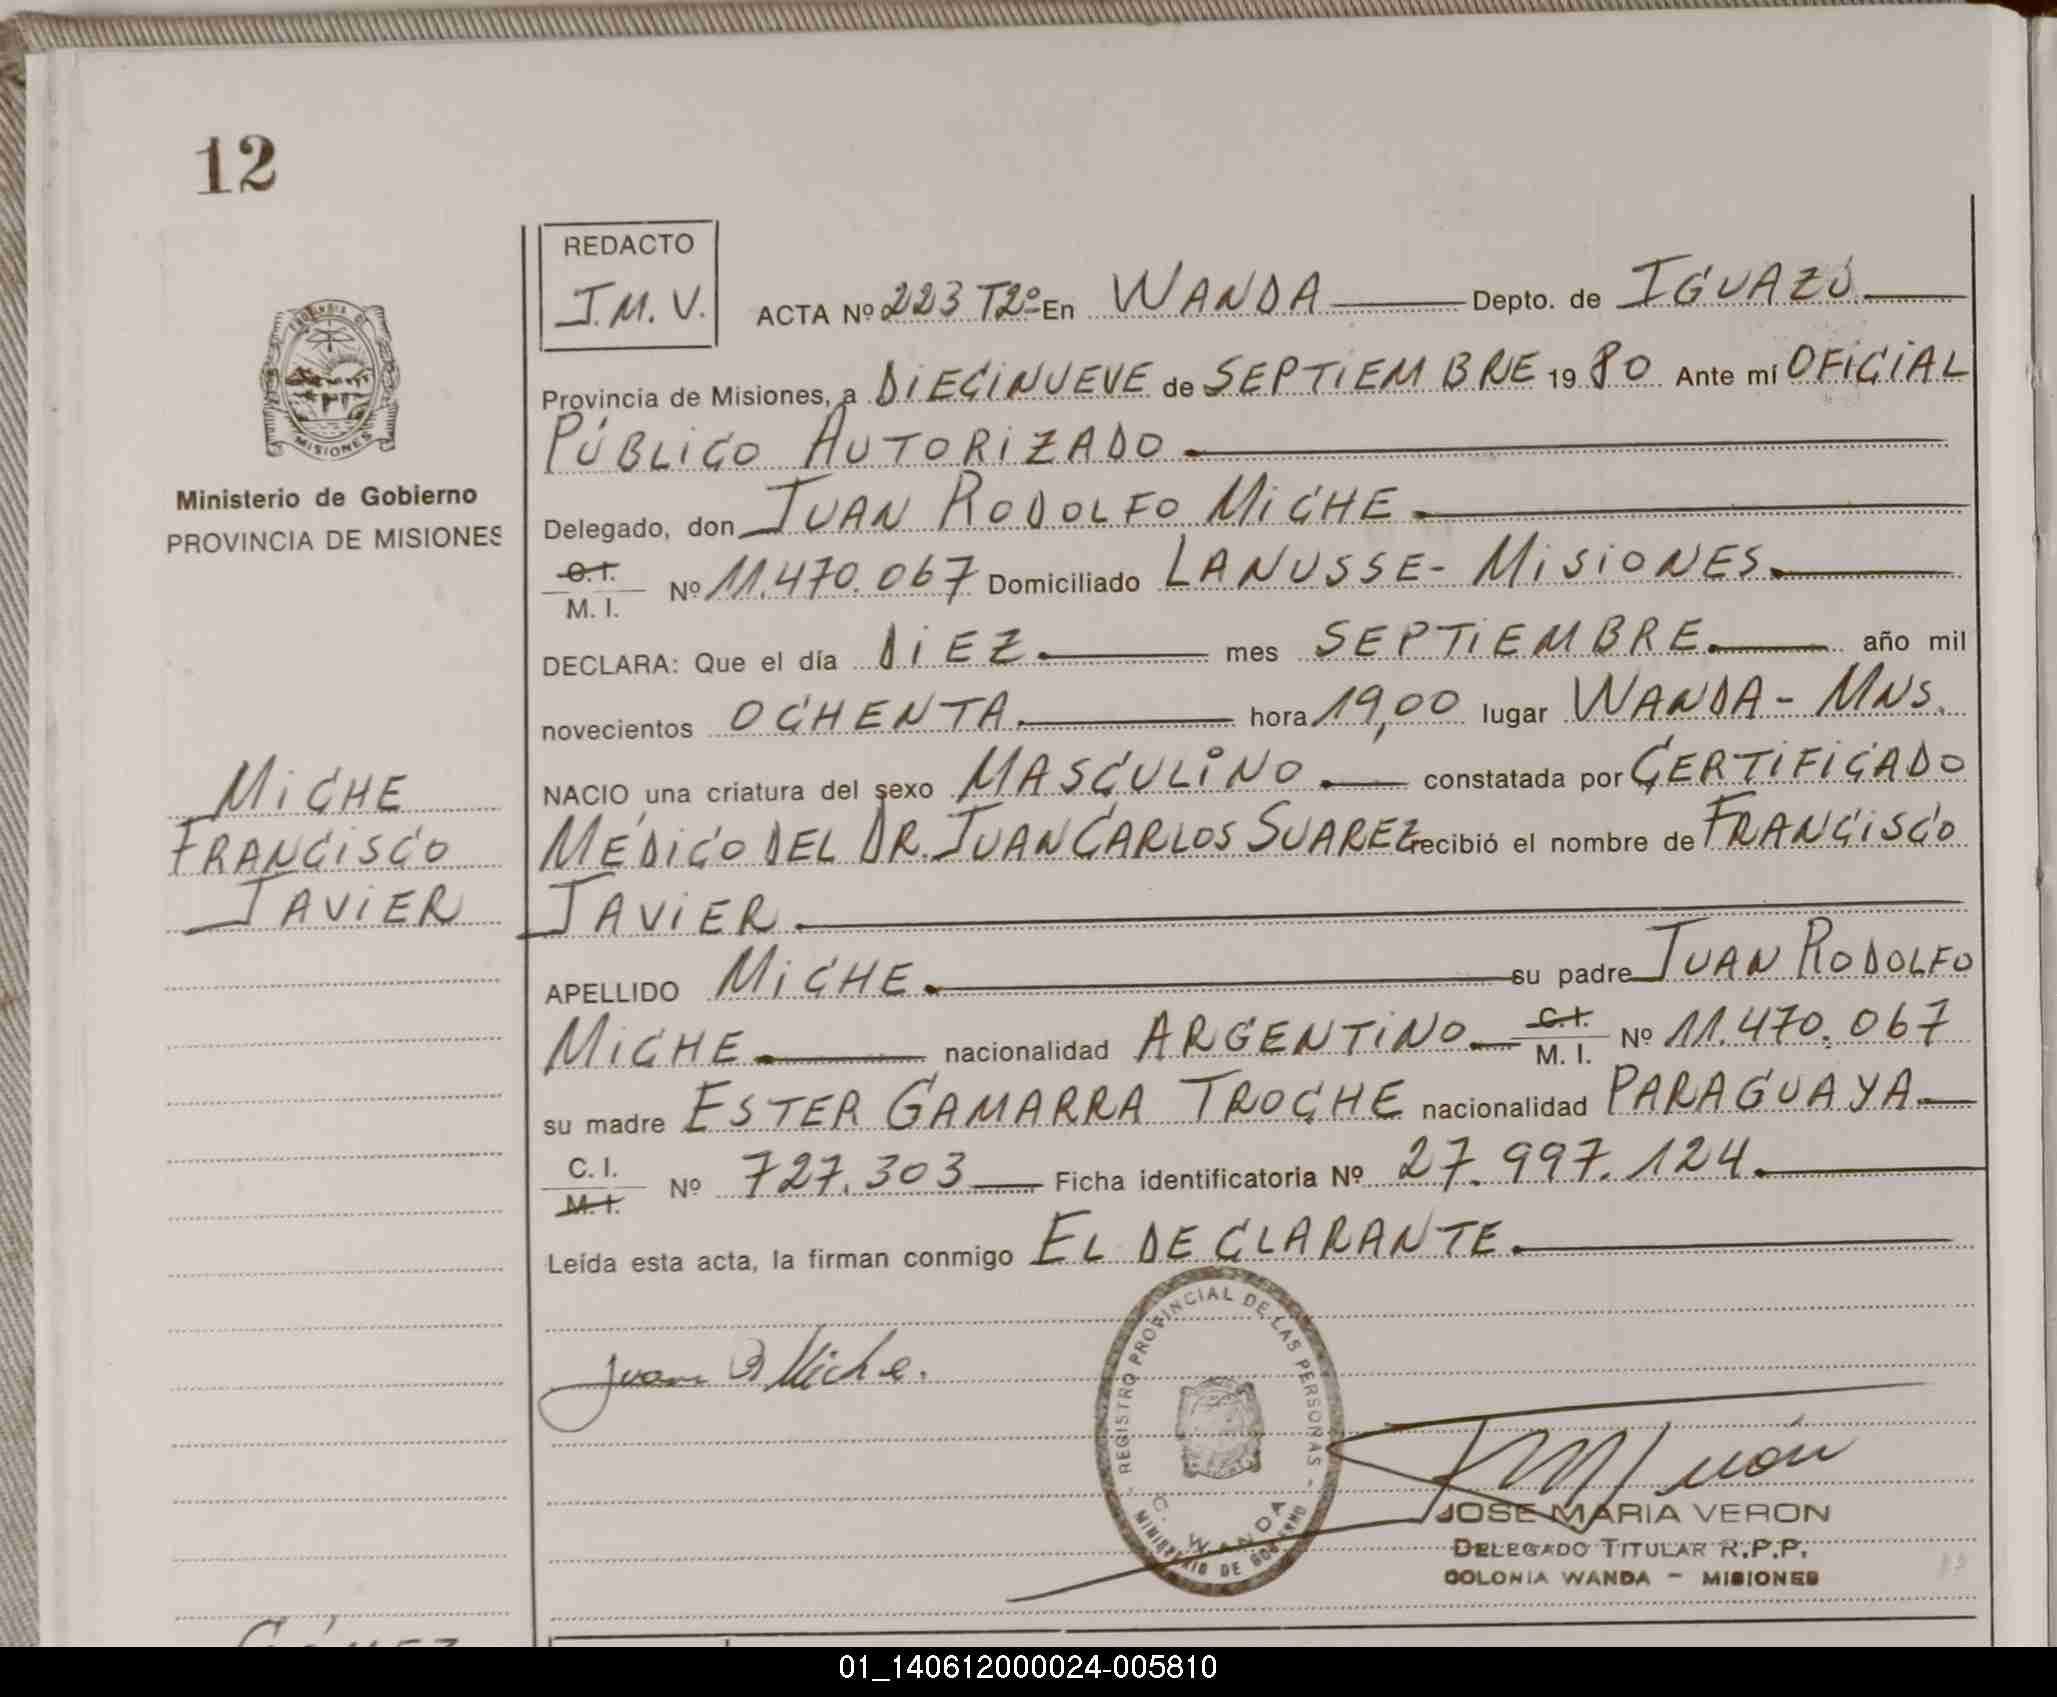 12
REDACTO
J.M.V.
ACTA Nº 223 T2º En WANDA Depto. de IGUAZÚ
Provincia de Misiones, a DIECINUEVE de SEPTIEMBRE 1980 Ante mí OFICIAL
PÚBLICO AUTORIZADO
Delegado, don JUAN RODOLFO MICHE
C.I.
M. I. Nº 11.470.067 Domiciliado LANUSSE - MISIONES.
DECLARA: Que el día DIEZ mes SEPTIEMBRE año mil
novecientos OCHENTA hora 19,00 lugar WANDA - MNS.
NACIO una criatura del sexo MASCULINO constatada por CERTIFICADO
MÉDICO DEL DR. JUAN CARLOS SUAREZ recibió el nombre de FRANCISCO
JAVIER
APELLIDO MICHE su padre JUAN RODOLFO
MICHE nacionalidad ARGENTINO C.I.
M. I. Nº 11.470.067
su madre ESTER GAMARRA TROCHE nacionalidad PARAGUAYA
C. I.
M. I. Nº 727.303 Ficha identificatoria Nº 27.997.124
Leída esta acta, la firman conmigo EL DECLARANTE
Juan R Miche.
REGISTRO PROVINCIAL DE LAS PERSONAS
C. WANDA
MINISTERIO DE GOBIERNO
JOSE MARIA VERON
DELEGADO TITULAR R.P.P.
COLONIA WANDA - MISIONES
PROVINCIA DE
MISIONES
Ministerio de Gobierno
PROVINCIA DE MISIONES
MICHE
FRANCISCO
JAVIER
GÓMEZ
01_140612000024-005810